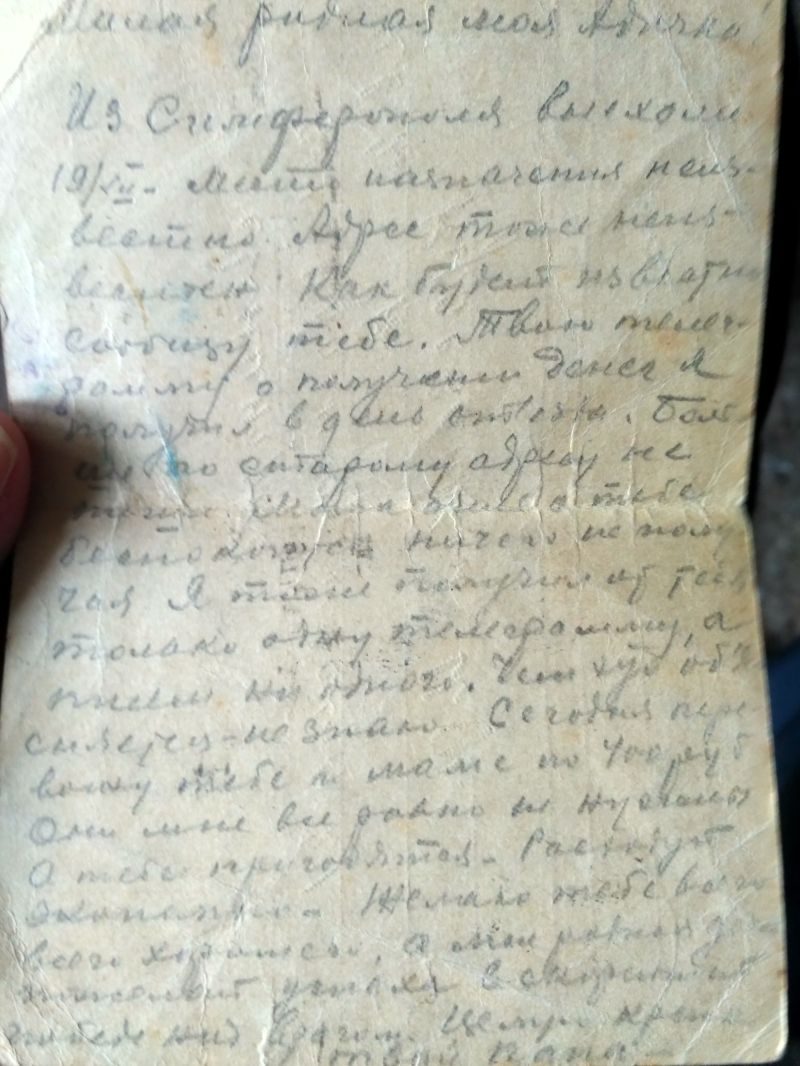 Милая родная моя Адичка!
Из Симферополя выехали
19/XII. Место назначения неиз-
вестно. Адрес тоже неиз-
вестен. Как будет известно
сообщу тебе. Твою телег-
рамму о получении денег я
получил в день отъезда. Больше
по старому адресу не
пиши. Мама очень о тебе
беспокоится ничего не полу-
чая Я тоже получил от тебя
только одну телеграмму, а
писем ни одного. Чем это объя
сняется - не знаю. Сегодня пере-
вожу тебе и маме по 400 руб
Они мне все равно не нужны
А тебе пригодятся. Расходуй
экономно. Желаю тебе всего
всего хорошего, а мы
победе над врагом. Целую крепко
твой папа -